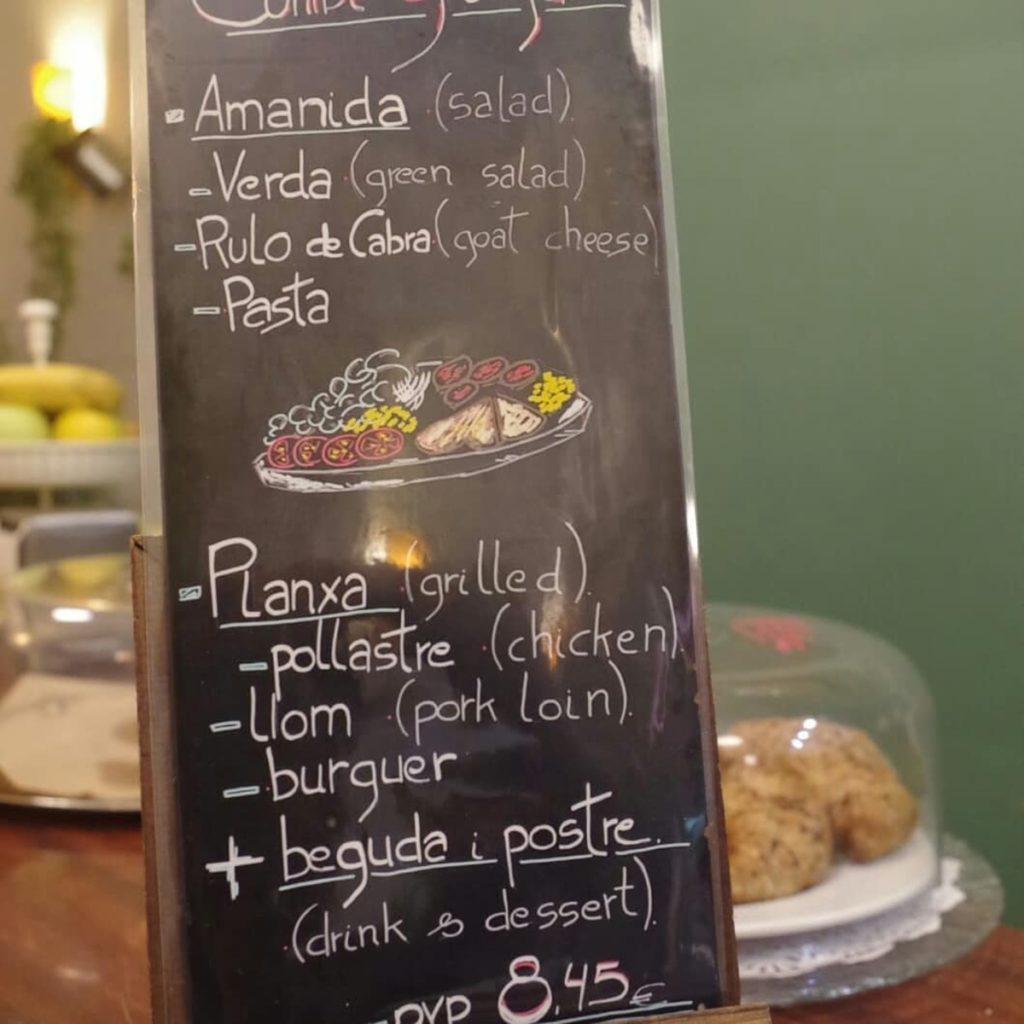 - Amanida (salad).
- Verda (green salad)
- Rulo de Cabra (goat cheese)
- Pasta
- Planxa (grilled).
- pollastre (chicken).
- llom (pork loin).
- burguer
+ beguda i postre.
(drink & dessert).
PVP 8,45€